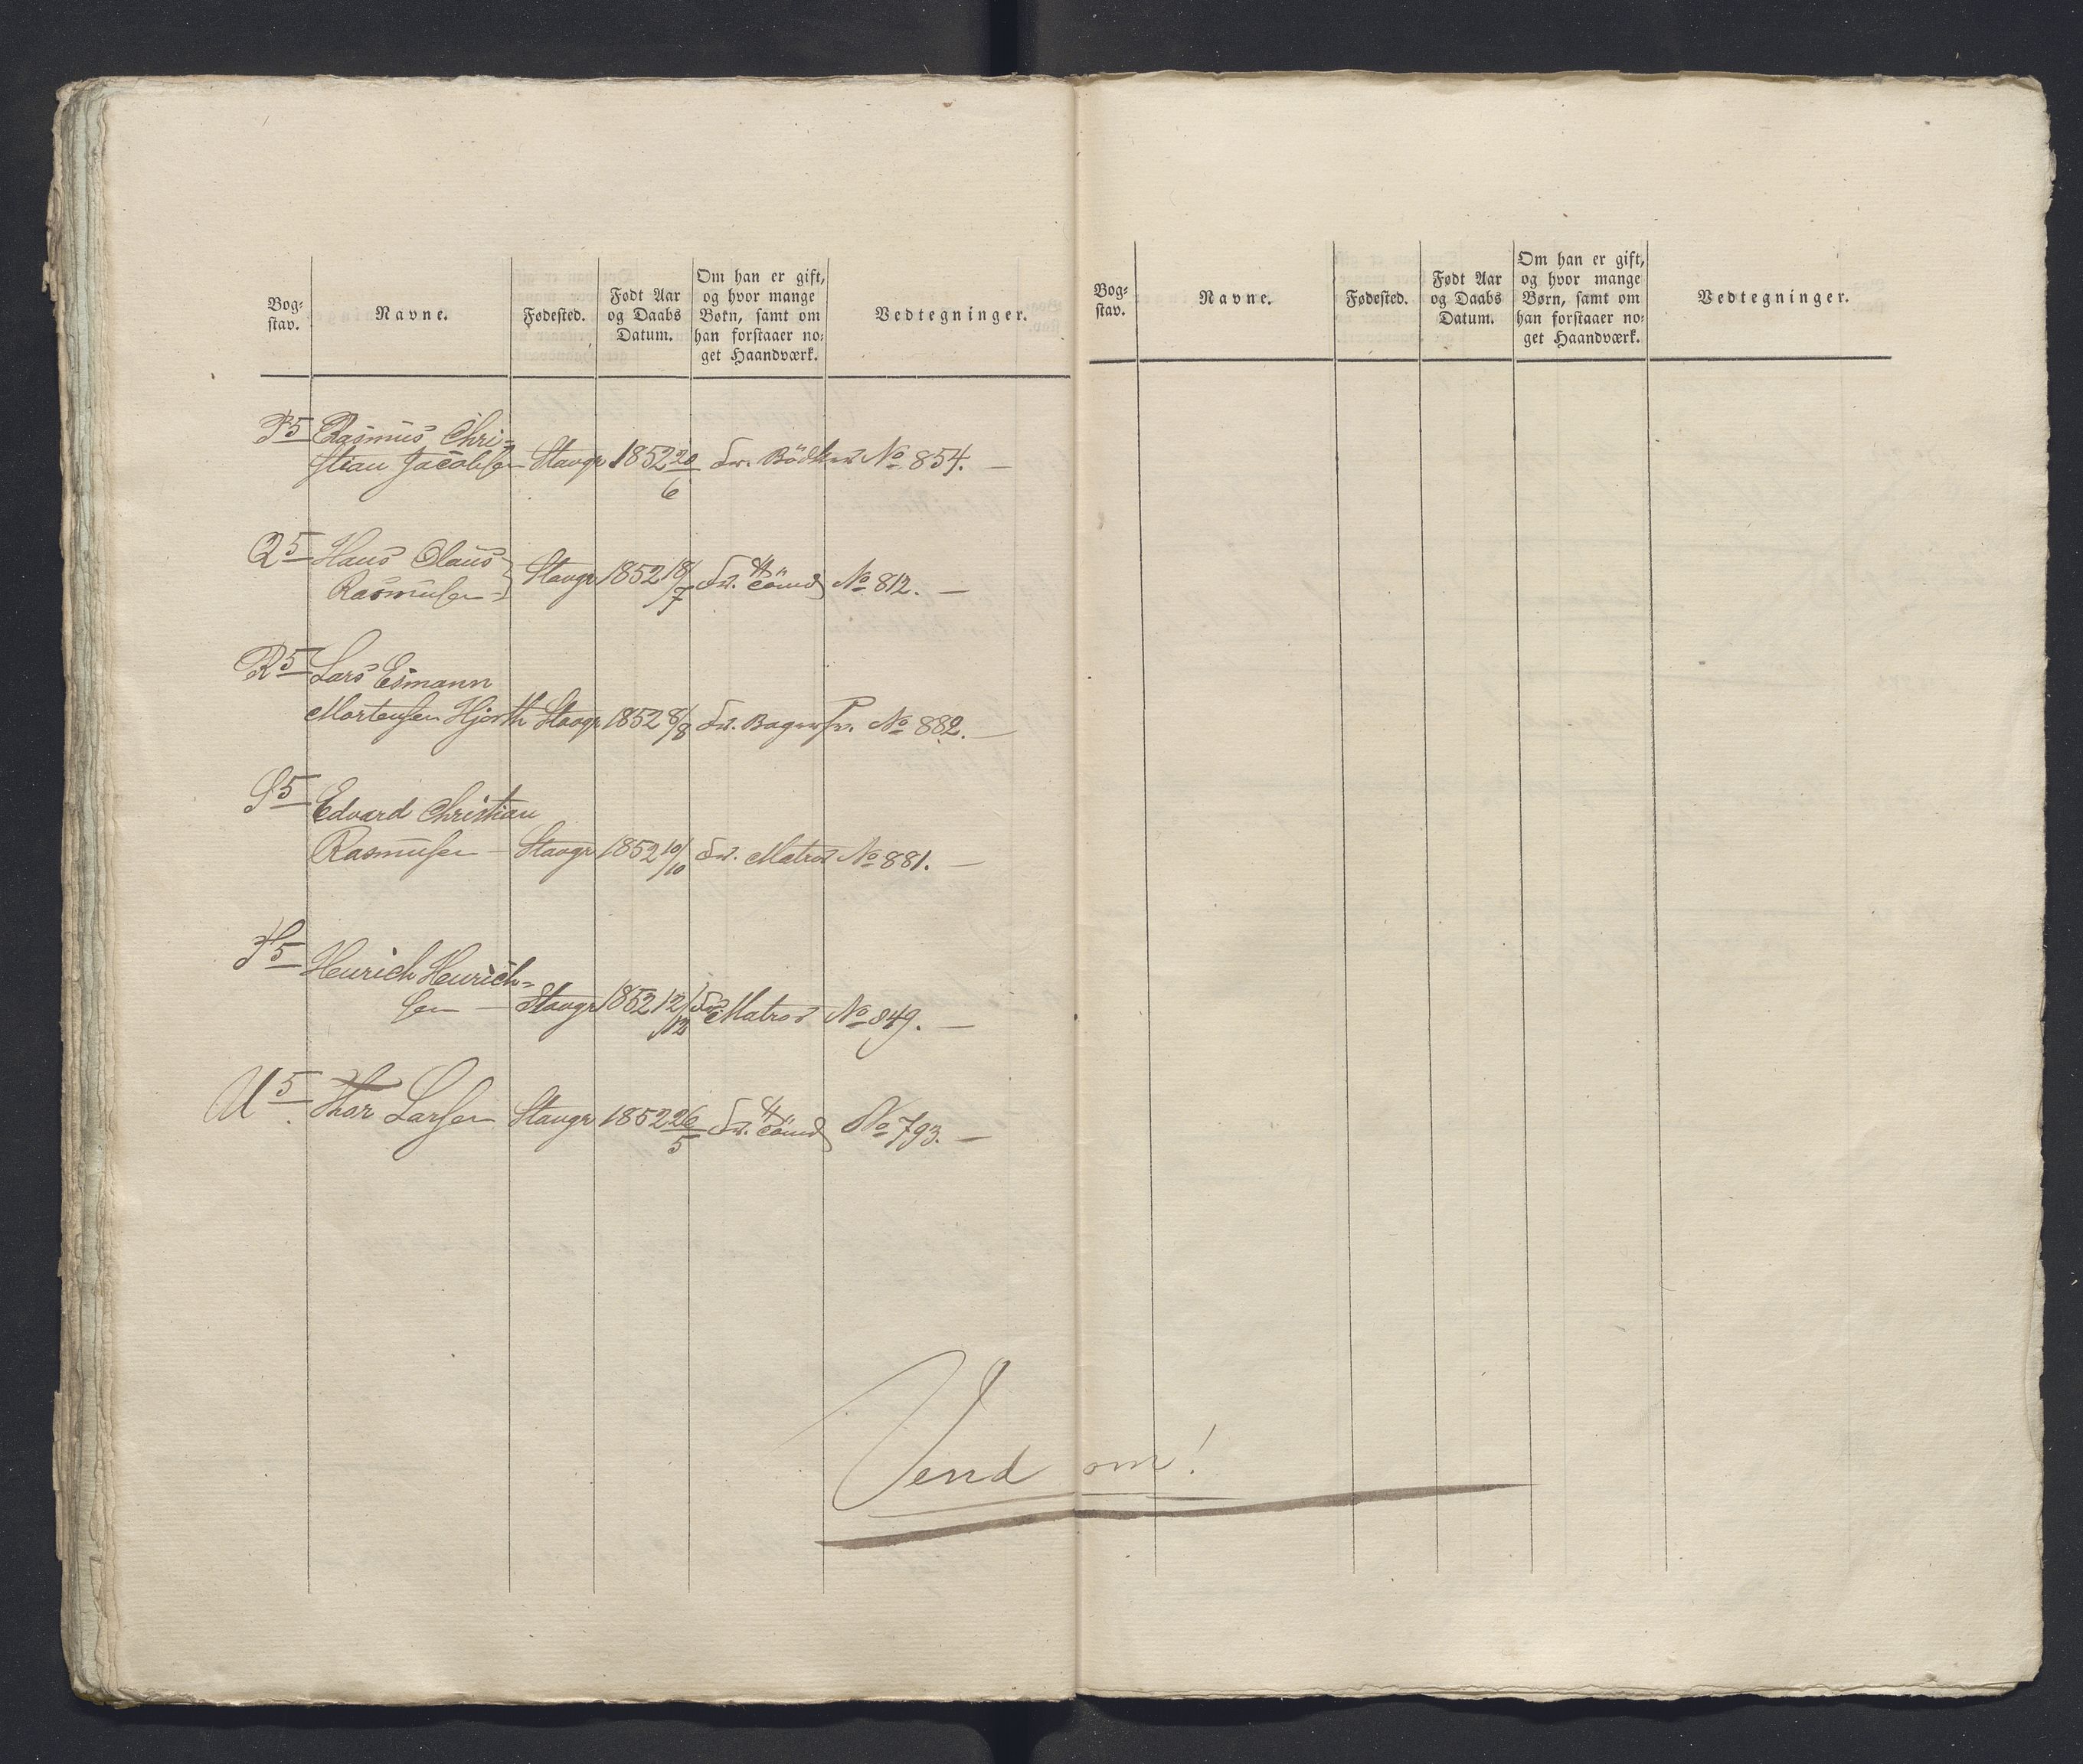 Bog-
stav.
Navne.
Fødested.
Født Aar
og Daabs
Datum.
Om han er gift,
og hvor mange
Børn, samt om
han forstaaer no-
get Haandværk.
Vedtegninger.
P5 Rasmus Chri-
stian Jacobsen Stavgr 1852 20/6 Fr. Bödker No 854. —
Q5 Hans Olaus
Rasmusen Stavgr 1852 18/7 Fr. No 812. —
R5 Lars Esmann
Mortensen Hjorth Stavgr 1852 8/8 Fr. No 882. —
S5 Edvard Christian
Rasmusen — Stavgr 1852 10/10 Fr. Matros No 881. —
T5 Henrich Henrich-
sen — Stavgr 1852 12/12 Fr. Matros No 849. —
U5 Thor Larsen Stavgr 1852 26/5 Fr. No 793. —
Vend om!
Bog-
stav.
Navne.
Fødested.
Født Aar
og Daabs
Datum.
Om han er gift,
og hvor mange
Børn, samt om
han forstaaer no-
get Haandværk.
Vedtegninger.